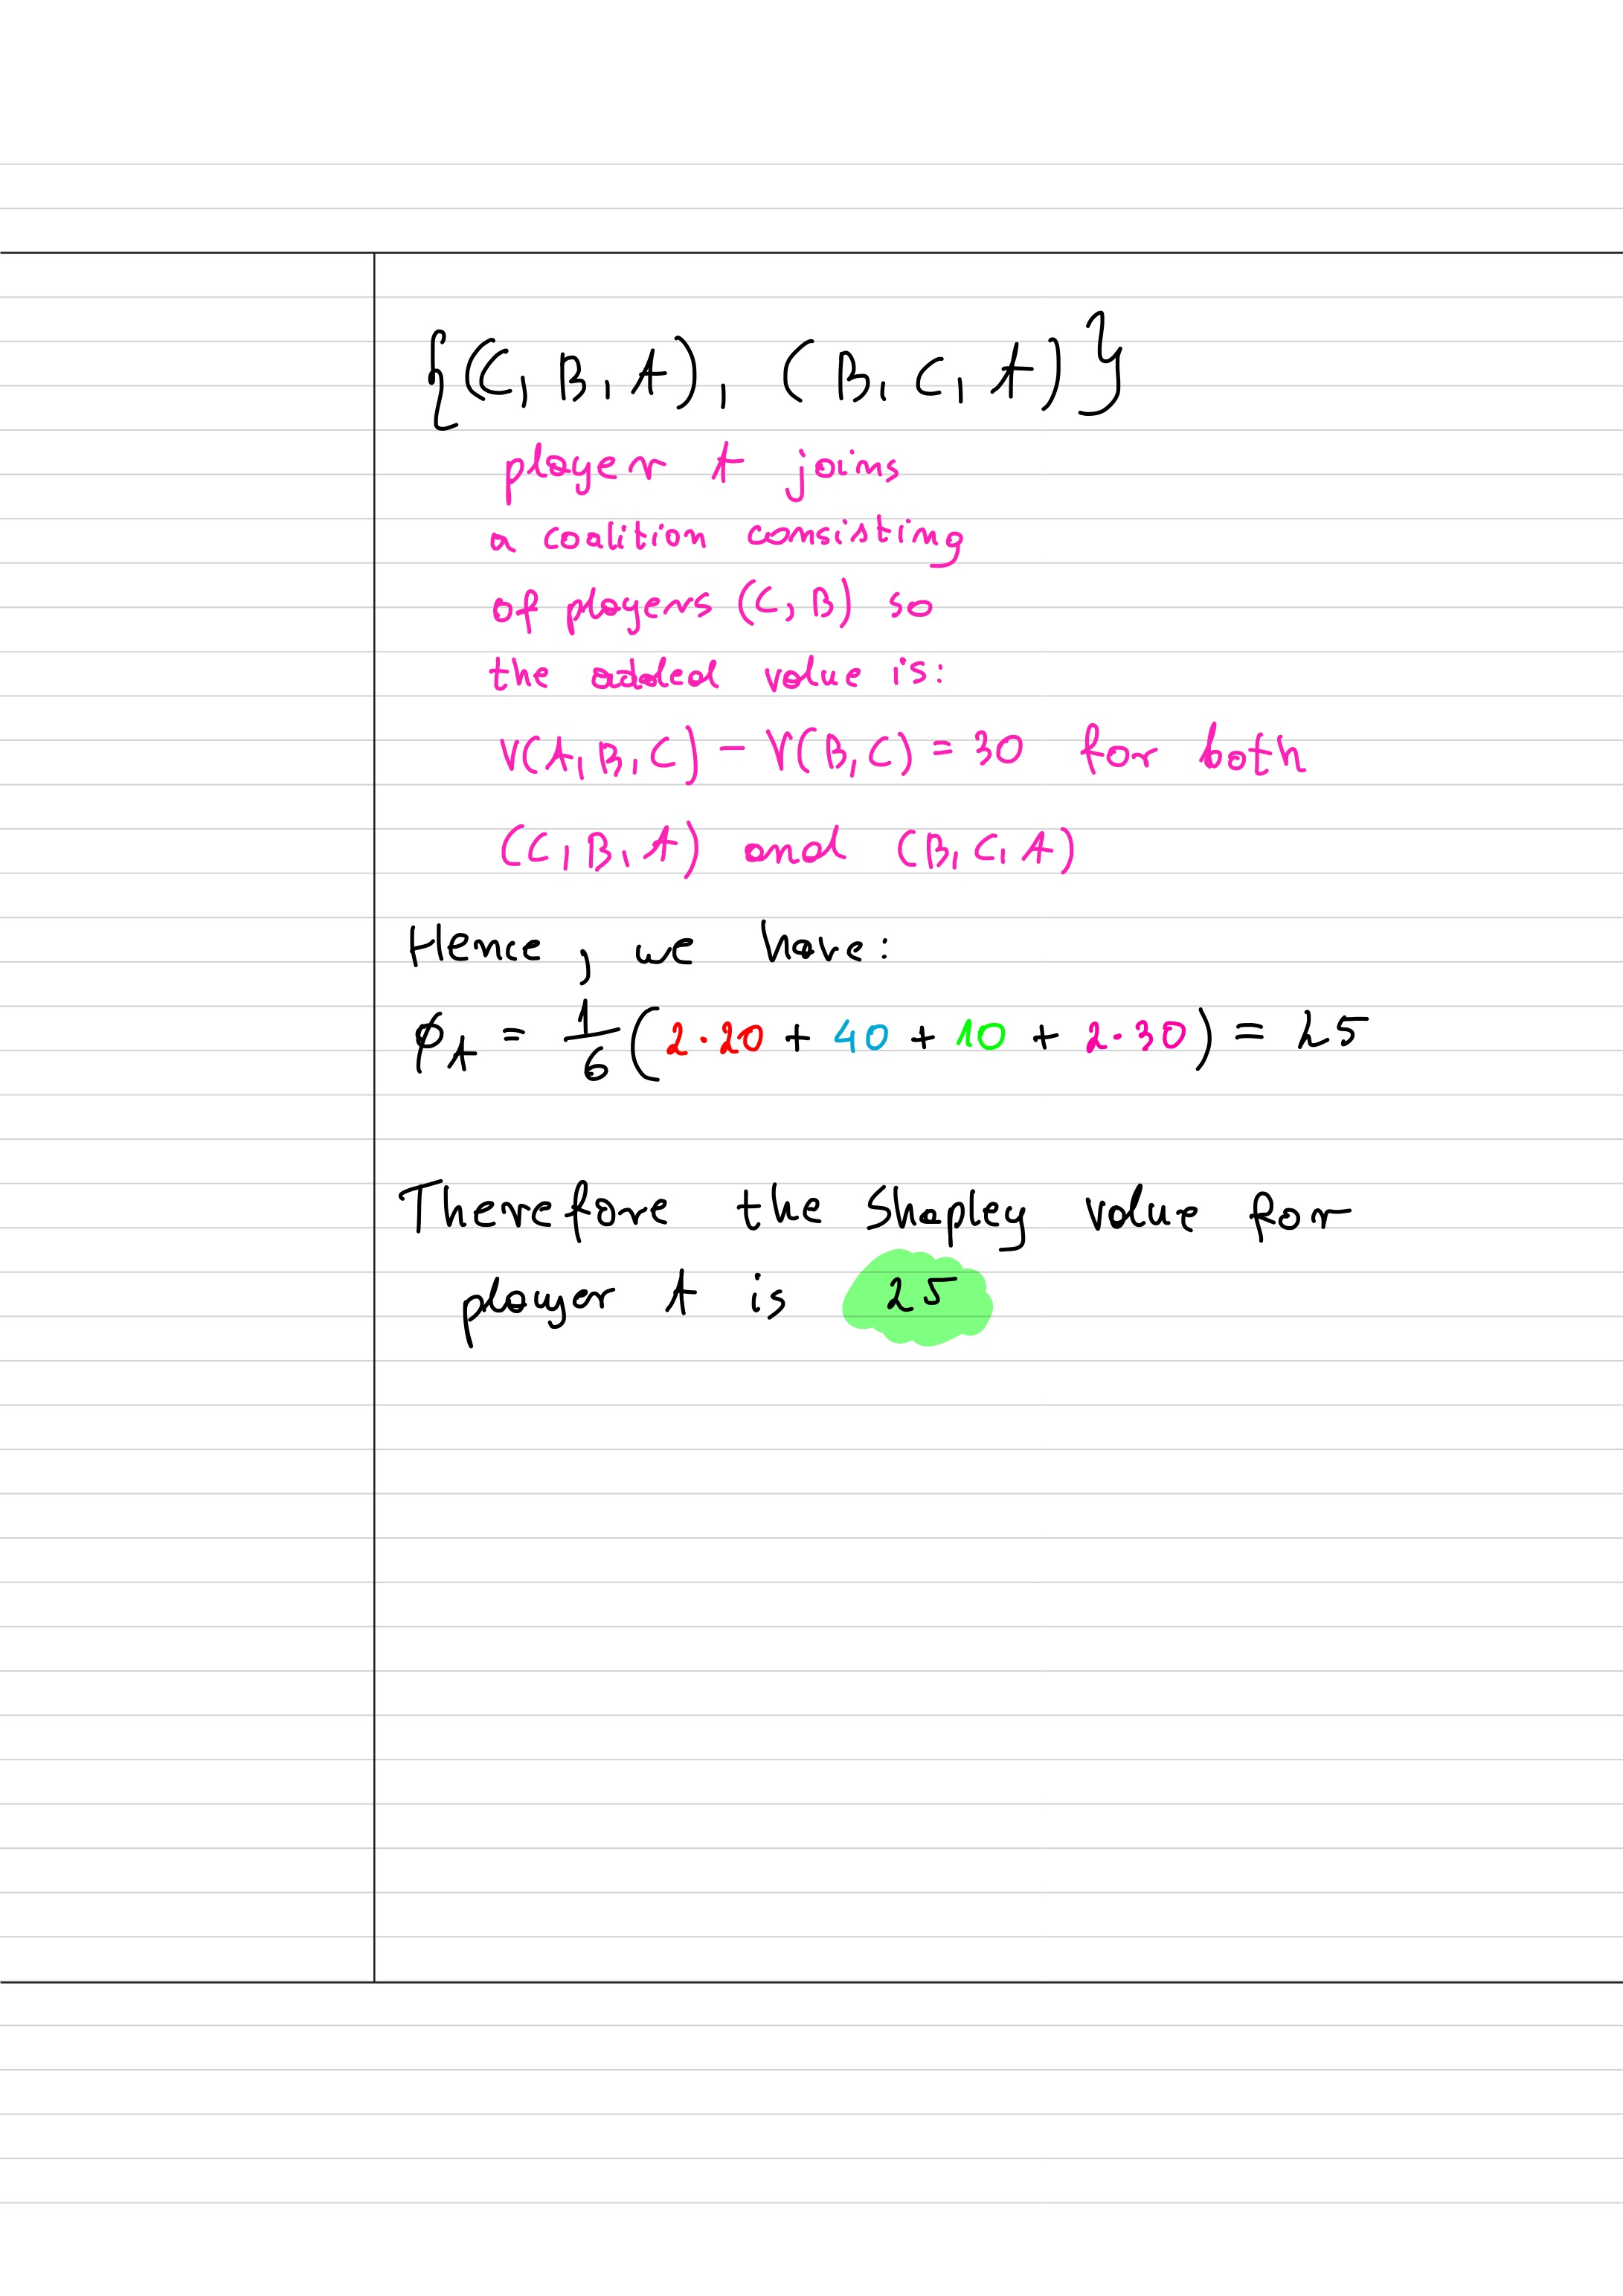 {(C, B, A), (B, C, A)}
player A joins
a coalition consisting
of players (C, B) so
the added value is:
V(A, B, C) - V(B, C) = 30 for both
(C, B, A) and (B, C, A)
Hence, we have:
ϕ_A = 1/6 (2·20 + 40 + 10 + 2·30) = 25
Therefore the Shapley value for
player A is 25